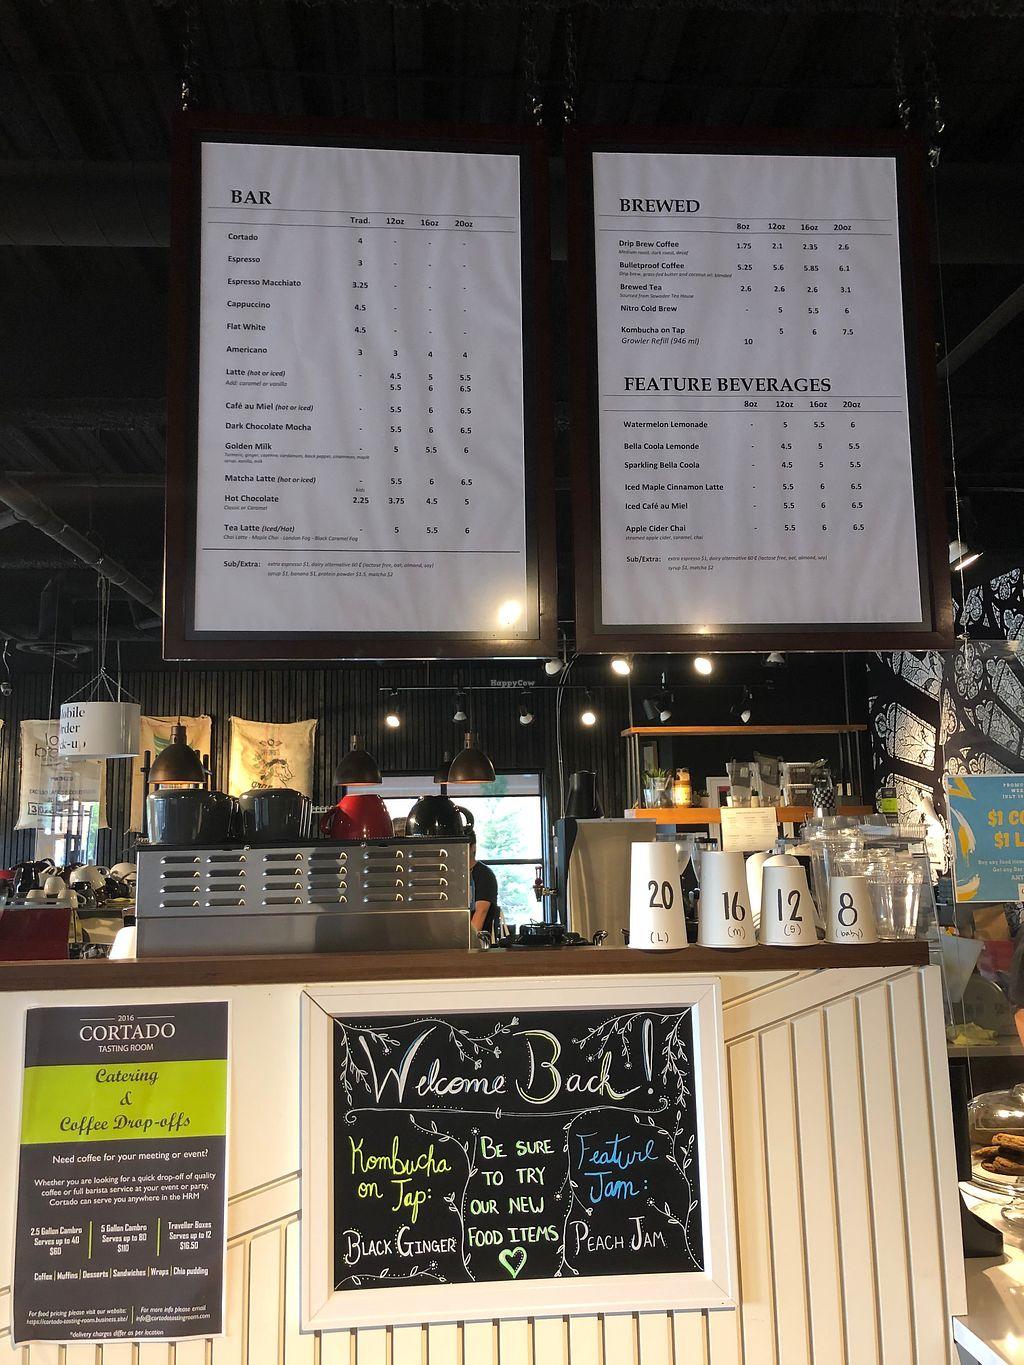 BAR
Trad. 12oz 16oz 20oz
Cortado 4 - - -
Espresso 3 - - -
Espresso Macchiato 3.25 - - -
Cappuccino 4.5 - - -
Flat White 4.5 - - -
Americano 3 3 4 4
Latte (hot or iced) - 4.5 5 5.5
Add: caramel or vanilla 5.5 6 6.5
Café au Miel (hot or iced) - 5.5 6 6.5
Dark Chocolate Mocha - 5.5 6 6.5
Golden Milk - 5 5.5 6
Turmeric, ginger, cayenne, cardamom, black pepper, cinnamon, maple
syrup, vanilla, milk
Matcha Latte (hot or iced) - 5.5 6 6.5
kids
Hot Chocolate 2.25 3.75 4.5 5
Classic or Caramel
Tea Latte (Iced/Hot) - 5 5.5 6
Chai Latte - Maple Chai - London Fog - Black Caramel Fog
Sub/Extra: extra espresso $1, dairy alternative 60 ¢ (lactose free, oat, almond, soy)
syrup $1, banana $1, protein powder $1.5, matcha $2
BREWED
8oz 12oz 16oz 20oz
Drip Brew Coffee 1.75 2.1 2.35 2.6
Medium roast, dark roast, decaf
Bulletproof Coffee 5.25 5.6 5.85 6.1
Drip brew, grass-fed butter and coconut oil blended
Brewed Tea 2.6 2.6 2.6 3.1
Sourced from Sawadee Tea House
Nitro Cold Brew - 5 5.5 6
Kombucha on Tap 5 6 7.5
Growler Refill (946 ml) 10
FEATURE BEVERAGES
8oz 12oz 16oz 20oz
Watermelon Lemonade - 5 5.5 6
Bella Coola Lemonde - 4.5 5 5.5
Sparkling Bella Coola - 4.5 5 5.5
Iced Maple Cinnamon Latte - 5.5 6 6.5
Iced Café au Miel - 5.5 6 6.5
Apple Cider Chai - 5.5 6 6.5
steamed apple cider, caramel, chai
Sub/Extra: extra espresso $1, dairy alternative 60 ¢ (lactose free, oat, almond, soy)
syrup $1, matcha $2
HappyCow
20
(L)
16
(M)
12
(S)
8
(baby)
$1
$1
2016
CORTADO
TASTING ROOM
Catering
&
Coffee Drop-offs
Need coffee for your meeting or event?
Whether you are looking for a quick drop-off of quality
coffee or full barista service at your event or party,
Cortado can serve you anywhere in the HRM
2.5 Gallon Cambro
Serves up to 40
$60
5 Gallon Cambro
Serves up to 80
$110
Traveller Boxes
Serves up to 12
$16.50
Coffee | Muffins | Desserts | Sandwiches | Wraps | Chia pudding
For food pricing please visit our website:
https://cortado-tasting-room.business.site/
For more info please email
info@cortadotastingroom.com
*delivery charges differ as per location
Welcome Back!
Kombucha
on Tap:
BLACK GINGER
BE SURE
TO TRY
OUR NEW
FOOD ITEMS
Feature
Jam:
PEACH JAM